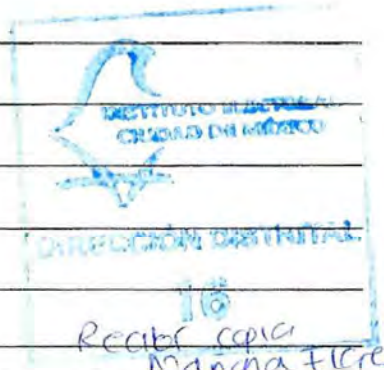 INSTITUTO ELECTORAL
CIUDAD DE MÉXICO
DIRECCIÓN DISTRITAL
16
Recibí copia